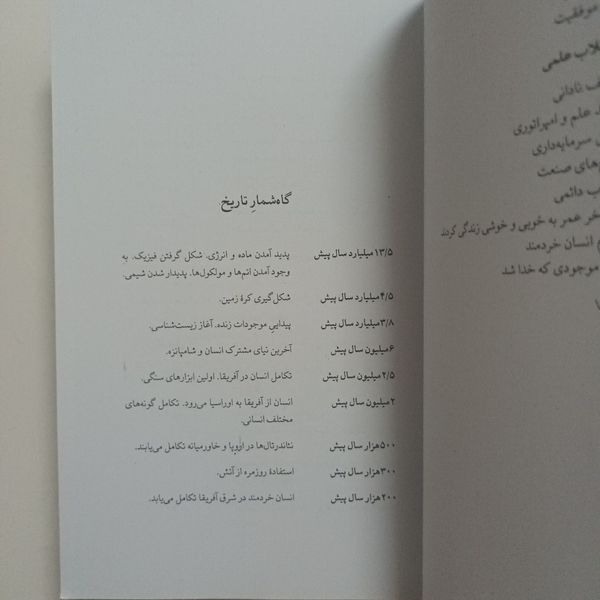 موفقیت
علمی
نادانی
علم و امپراتوری
سرمایه‌داری
صنعت
دائمی
عمر به خوبی و خوشی زندگی کردند
انسان خردمند
موجودی که خدا شد
گاه‌شمارِ تاریخ
۱۳/۵ میلیارد سال پیش پدید آمدن ماده و انرژی. شکل گرفتن فیزیک. به
وجود آمدن اتم‌ها و مولکول‌ها. پدیدار شدن شیمی.
۴/۵ میلیارد سال پیش شکل‌گیری کرهٔ زمین.
۳/۸ میلیارد سال پیش پیدایی موجودات زنده. آغاز زیست‌شناسی.
۶ میلیون سال پیش آخرین نیای مشترک انسان و شامپانزه.
۲/۵ میلیون سال پیش تکامل انسان در آفریقا. اولین ابزارهای سنگی.
۲ میلیون سال پیش انسان از آفریقا به اوراسیا می‌رود. تکامل گونه‌های
مختلف انسانی.
۵۰۰ هزار سال پیش نئاندرتال‌ها در اروپا و خاورمیانه تکامل می‌یابند.
۳۰۰ هزار سال پیش استفادهٔ روزمره از آتش.
۲۰۰ هزار سال پیش انسان خردمند در شرق آفریقا تکامل می‌یابد.